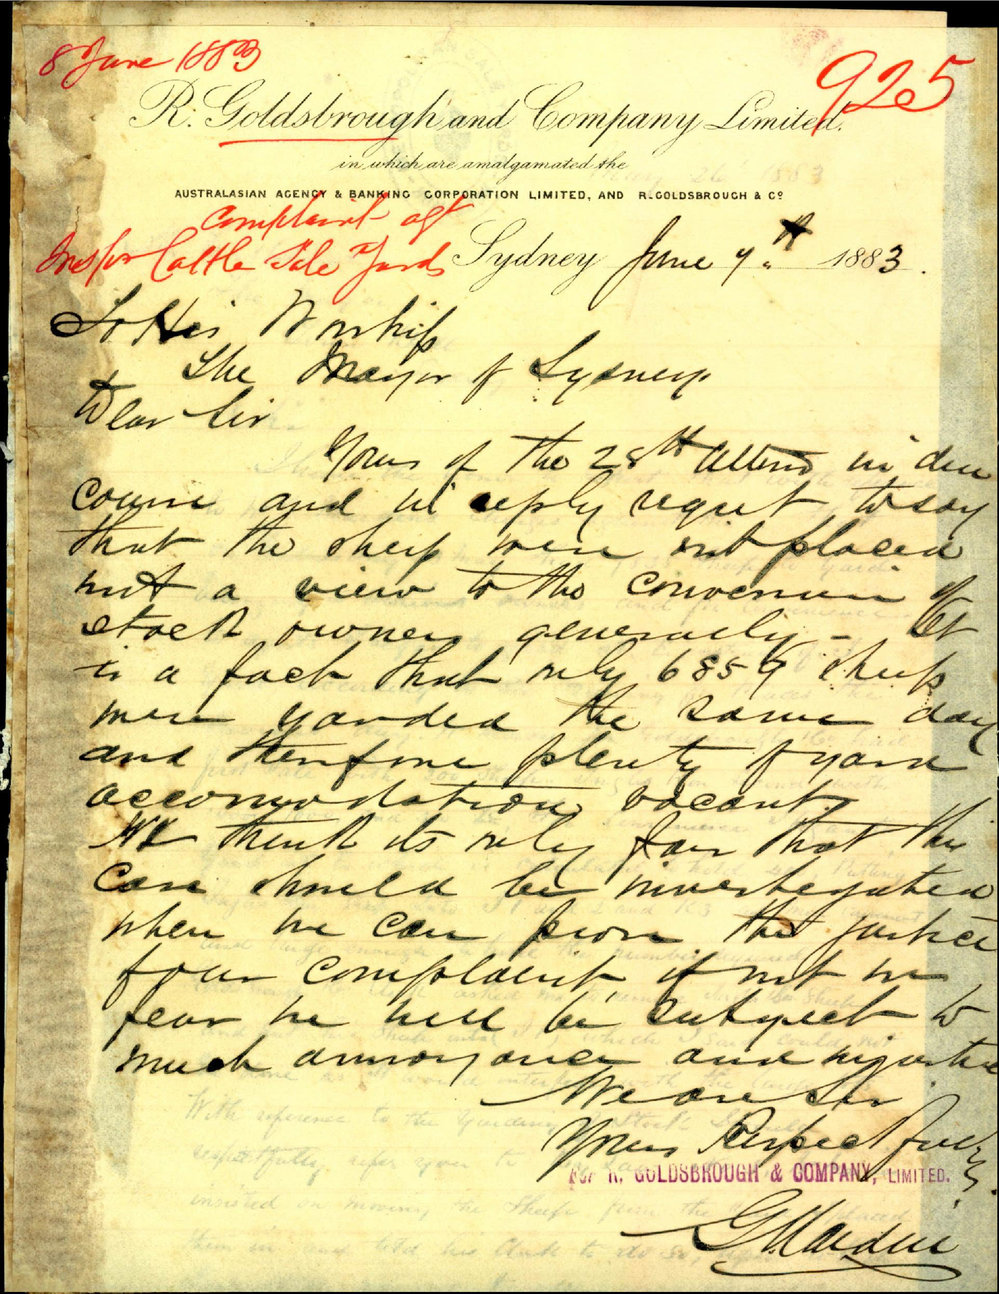 8 June 1883
925
R. Goldsbrough and Company Limited.
in which are amalgamated the
AUSTRALASIAN AGENCY & BANKING CORPORATION LIMITED, AND R. GOLDSBROUGH & Co
Complaint agt
Inspr Cattle Sale Yards
Sydney June 7th 1883.
To His Worship
The Mayor of Sydney.
Dear Sir
Yours of the 28th ultmo in due
course and in reply regret to say
that the sheep were not placed
with a view to the convenience of
stock owners generally - It
is a fact that only 6859 sheep
were yarded the same day
and therefore plenty of yard
accommodation vacant.
We think its only fair that this
case should be investigated
when we can prove the justice
of our complaint if not we
fear we will be subject to
much annoyance and injustice
We are Sir
Yours Respectfully
For R. GOLDSBROUGH & COMPANY, LIMITED.
G Maiden